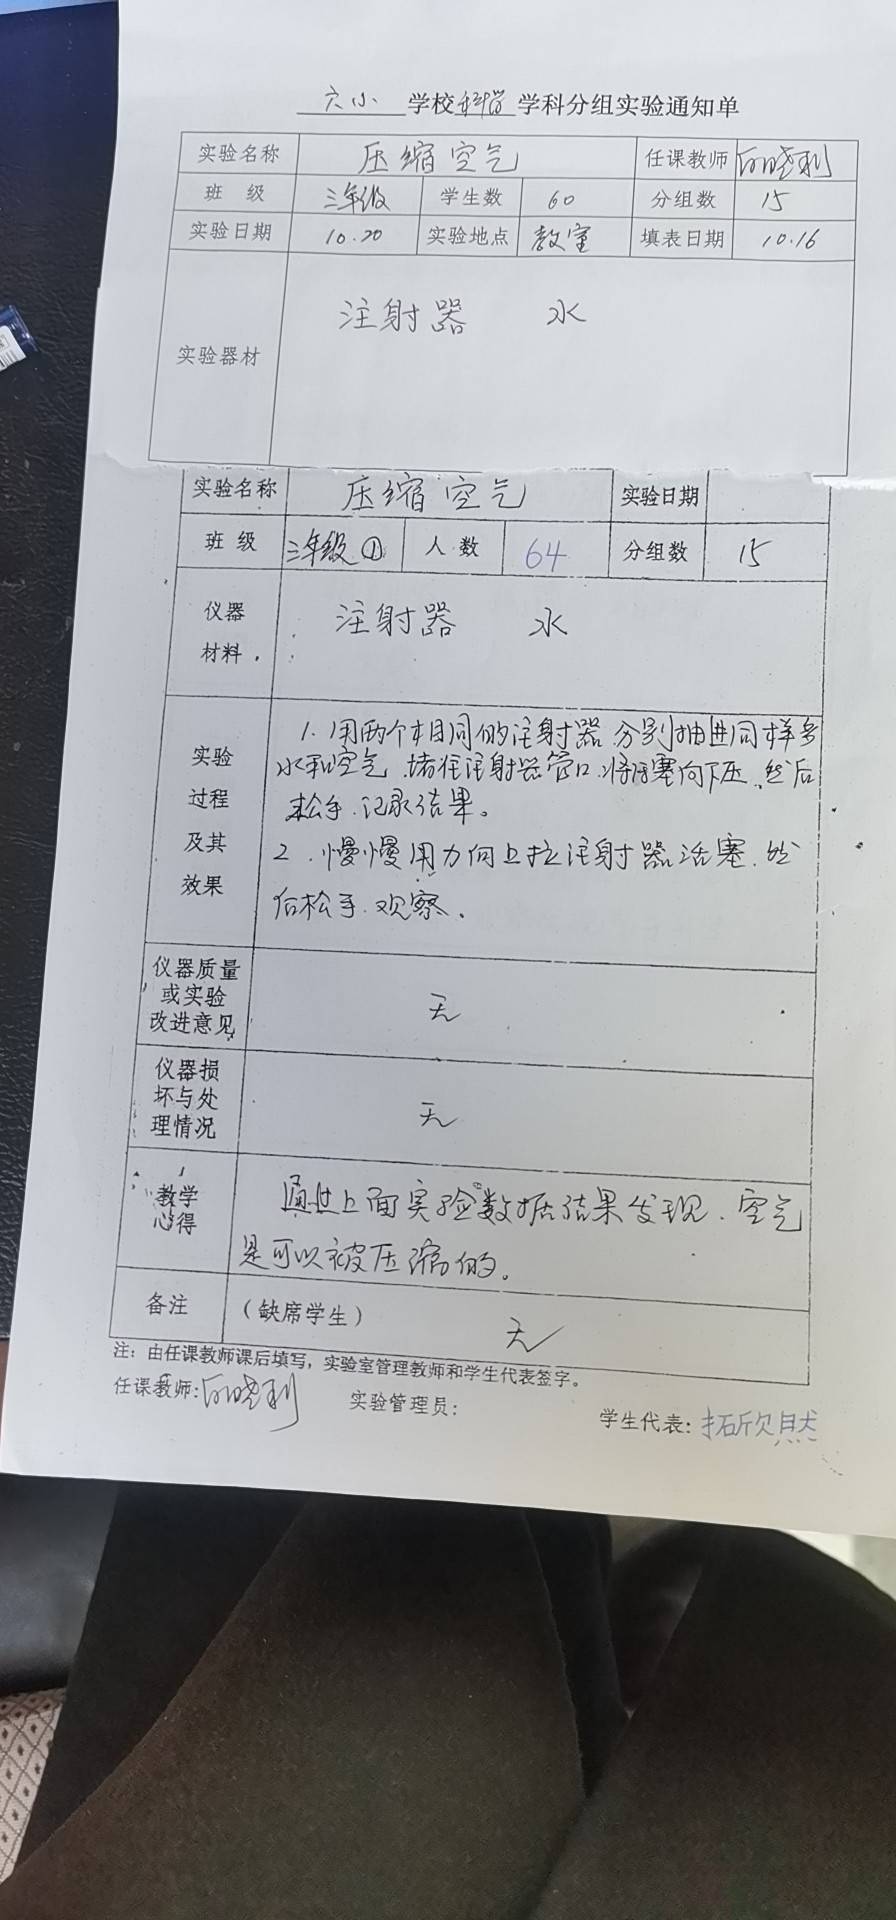 六小 学校科学学科分组实验通知单
实验名称 压缩空气 任课教师 白晓利
班 级 三年级 学生数 60 分组数 15
实验日期 10.20 实验地点 教室 填表日期 10.16
实验器材 注射器 水
实验名称 压缩空气 实验日期
班 级 三年级① 人 数 64 分组数 15
仪器
材料
注射器 水
实验
过程
及其
效果
1. 用两个相同的注射器分别抽进同样多
水和空气.堵住注射器管口.将活塞向下压.然后
松手.记录结果。
2.慢慢用力向上拉注射器活塞.然
后松手.观察.
仪器质量
或实验
改进意见
无
仪器损
坏与处
理情况
无
教学
心得
通过上面实验数据结果发现.空气
是可以被压缩的。
备注 (缺席学生) 无
注：由任课教师课后填写，实验室管理教师和学生代表签字。
任课教师:白晓利 实验管理员: 学生代表:拓欣然